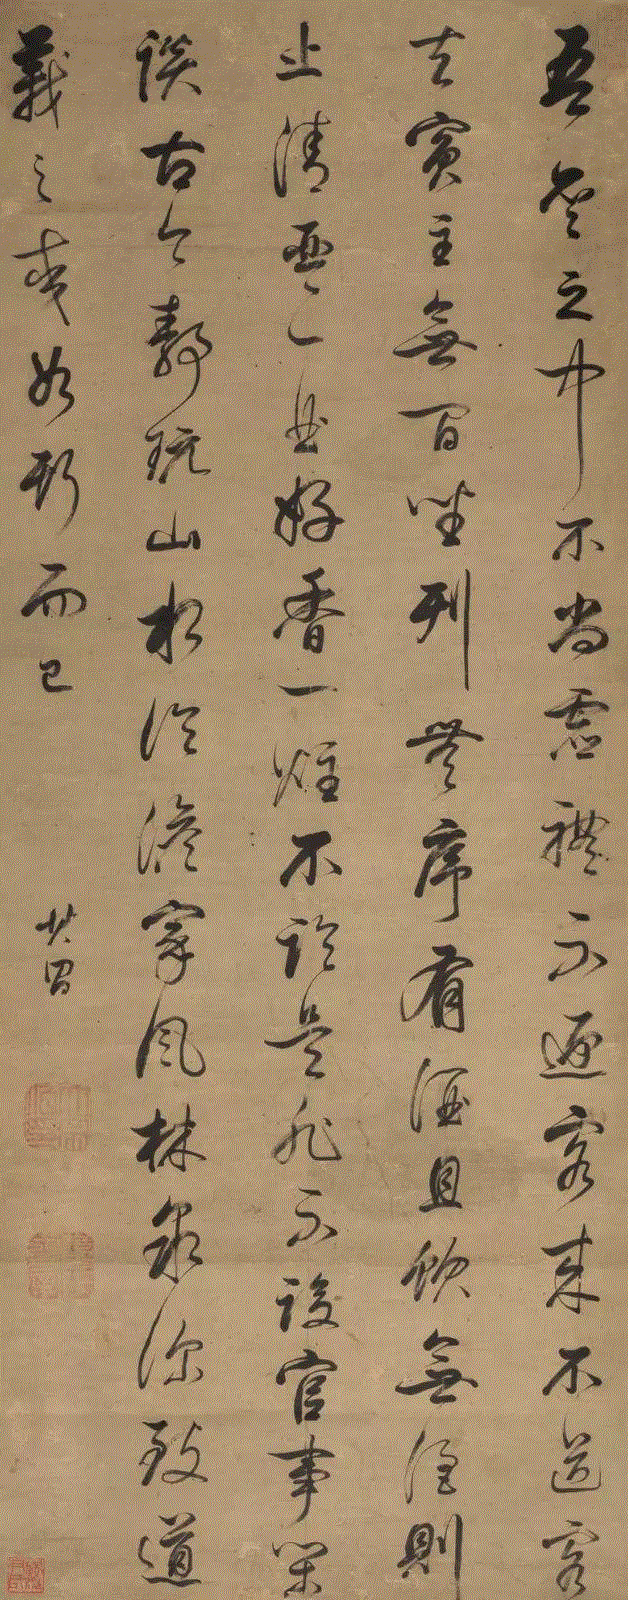 吾齋之中不尚虛禮不迎客來不送客
去賓主無間坐列無序有酒且飲無酒則
止清琴一曲好香一炷不論是非不官事閑
談古今靜玩山水冷澹家風林泉深致道
義之交如斯而已
其昌